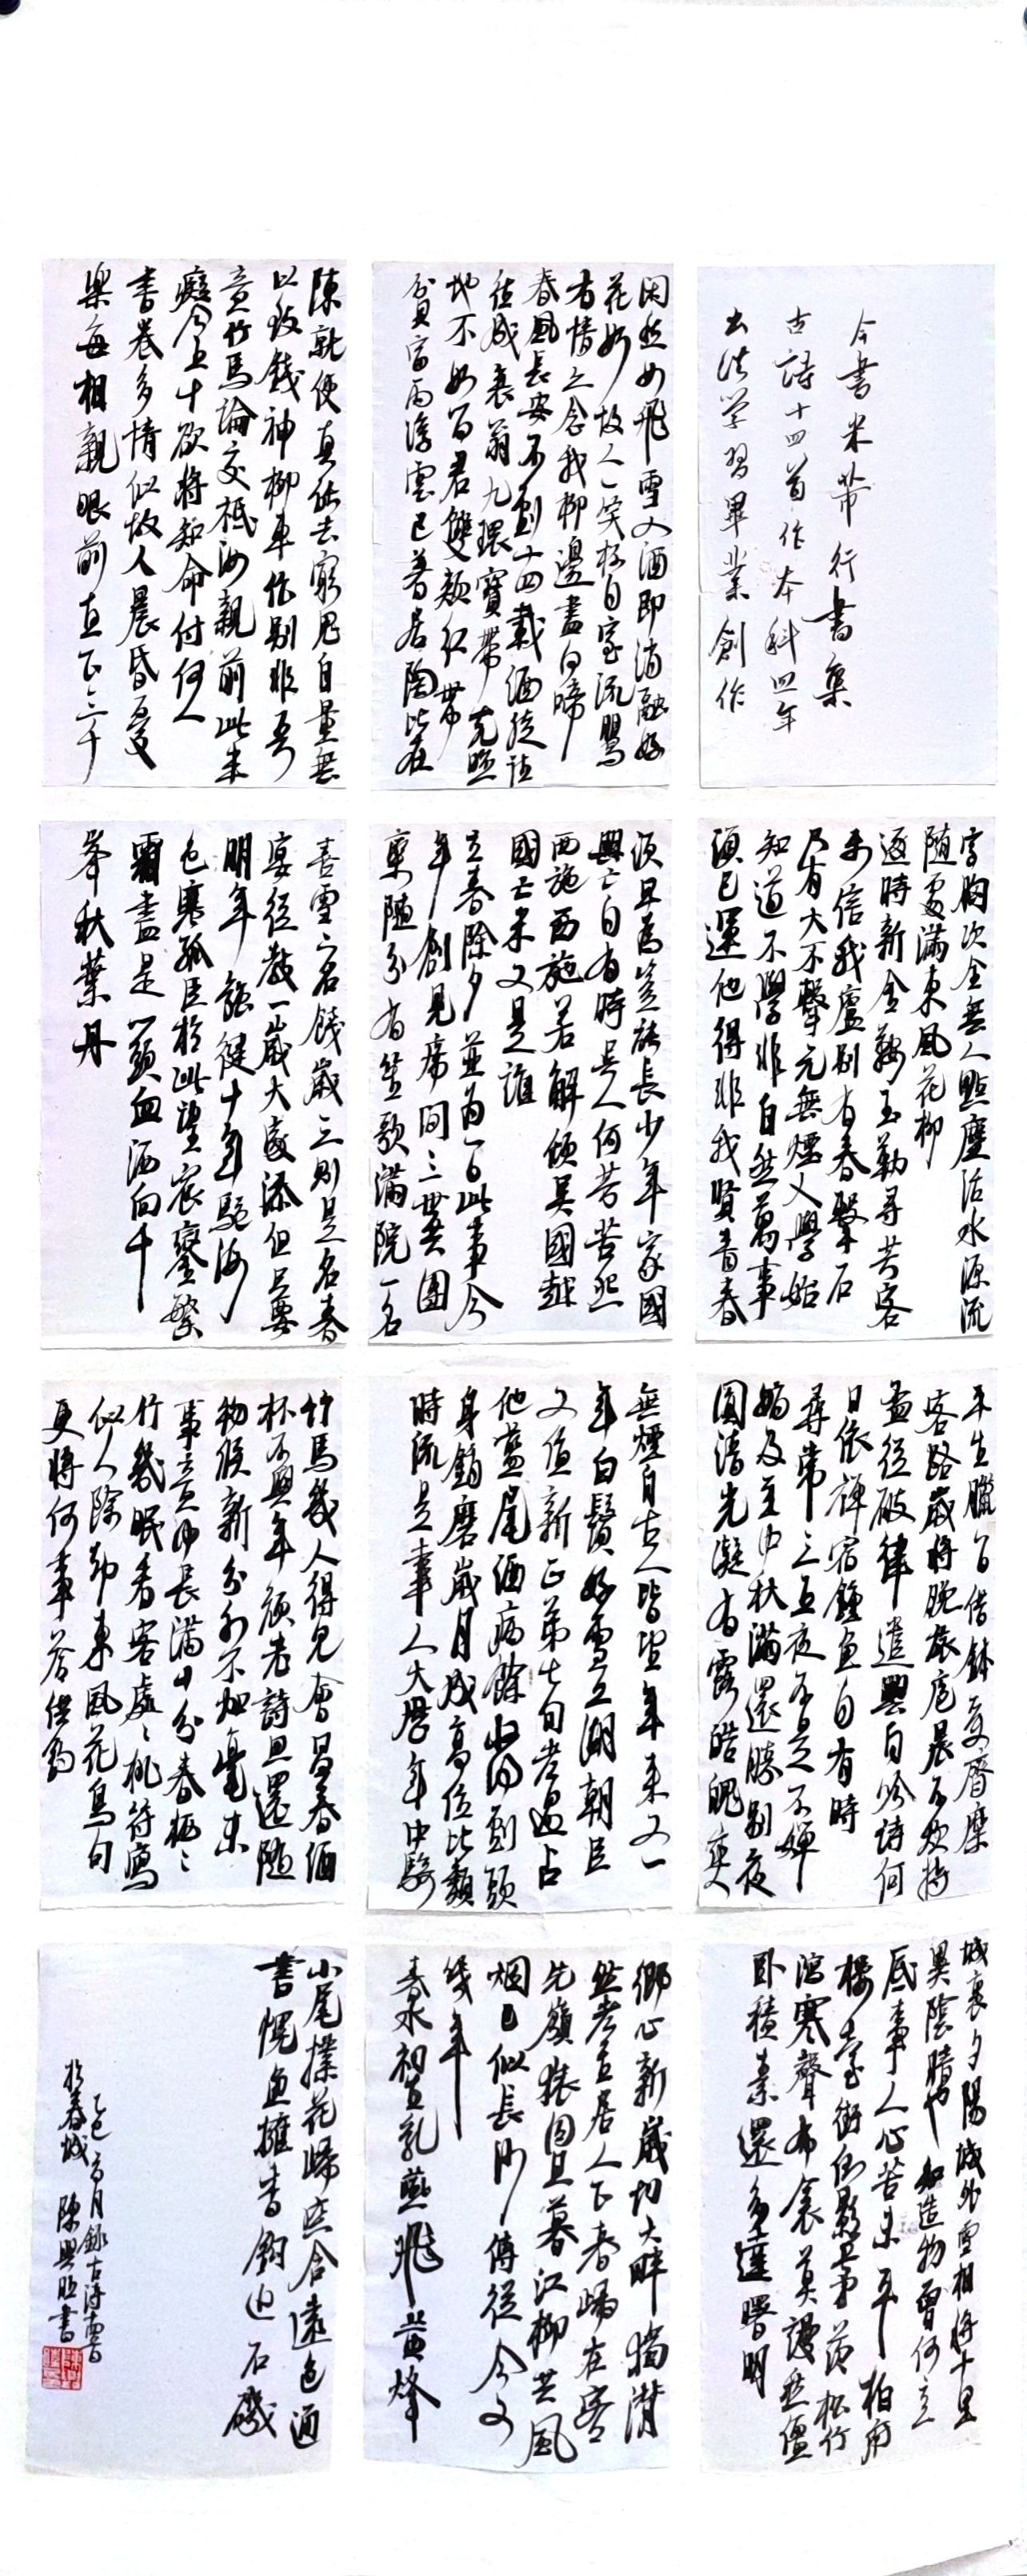 今書米芾行書集
古詩十四首作本科四年
书法学習畢業創作
閑愁如飛雪入酒即消融好
花如故人一笑杯自空流鶯
有情亦念我柳邊盡日啼
春風長安不到十四載酒徒往
往成衰翁九環寶帶光照
地不如留君雙頰紅世
貧富兩浮雲已著居陶比在
陳就使真能去窮鬼自量無
以致錢神柳車作別非吾
意竹馬論交祗汝親前此未
癡今五十欲將知命付何人
書卷多情似故人晨昏憂
樂每相親眼前直下三千
字胸次全無一點塵活水源流
隨處滿東風花柳
逐時新金鞍玉勒尋芳客
未信我廬別有春擊石
乃有火不擊元無煙人學始
知道不學非自然萬事
須己運他得非我賢青春
須早為豈能長少年家國
興亡自有時吳人何苦怨
西施西施若解傾吳國越
國亡來又是誰
立春除夕並為一日此事今
年創見席間三世共團
欒隨分有笙歌滿院一名
喜雪二名餞歲三則是名春
宴從教一歲大家添但只要
明年強健十年驅馳海
色寒孤臣於此望宸鑾繁
霜盡是心頭血洒向千
峯秋葉丹
平生臘日借鉢受齊糜
客路歲將晚旅庖晨不炊持
盂從破律遣興自吟詩何
日依禪宿鐘魚自有時
尋常三五夜不是不嬋
娟及至中秋滿還勝別夜
圓清光凝有露皓魄爽
無煙自古人皆望年來又一
年白鬢如雪五湖朝臣
又值新正第七旬老過占
他藍尾酒病餘收得到頭
身銷磨歲月成高位比類
時流是幸人大歷年中騎
竹馬幾人得見會昌春酒
杯不與年顏老詩思還隨
物候新分外不加毫末
事意中長滿十分春極之
竹幾眠香客處處桃符寫
似人除卻東風花鳥句
更將何事答洪鈞
城裏夕陽城外雪相將十里
異陰晴也知造物曾何意
底事人心苦未平柏府
樓臺銜倒影茅茨松竹
瀉寒聲布衾莫謾愁僵
臥積素還多達曙明
鄉心新歲切大畔獨潸
然老至居人下春歸在客
先嶺猿同旦暮江柳共風
烟已似長沙傅從今又
幾年
春水初生乳燕飛黃蜂
小尾撲花歸窓含遠色通
書幌魚擁香鉤近石磯
乙巳六月錄古詩
於春城 陳興旺書